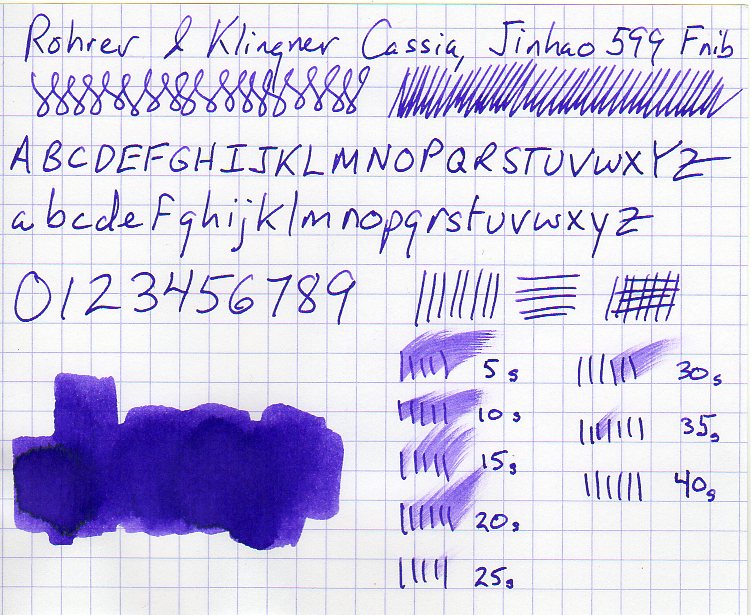 Rohrer & Klingner Cassia, Jinhao 599 F nib
A B C D E F G H I J K L M N O P Q R S T U V W X Y Z
a b c d e f g h i j k l m n o p q r s t u v w x y z
0 1 2 3 4 5 6 7 8 9
5s
10s
15s
20s
25s
30s
35s
40s